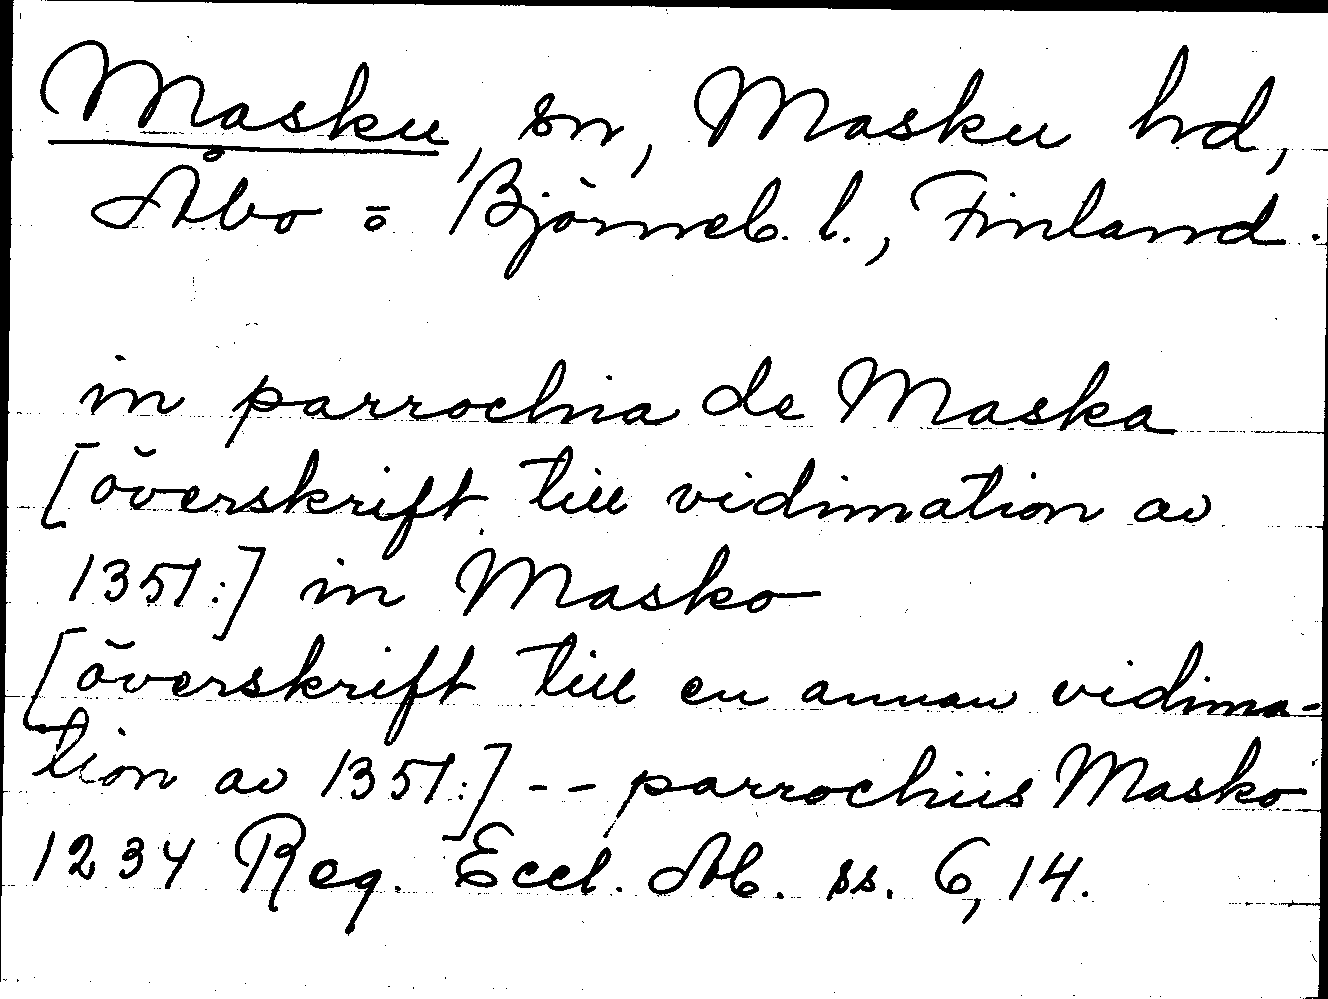 Masku, sn, Masku hd,
Åbo = Björneb. l., Finland.
in parrochia de Maska
[överskrift till vidimation av
1351:] in Masko
[överskrift till en annan vidima-
tion av 1351:] -- parrochiis Masko
1234 Reg. Eccl. Ab. ss. 6, 14.